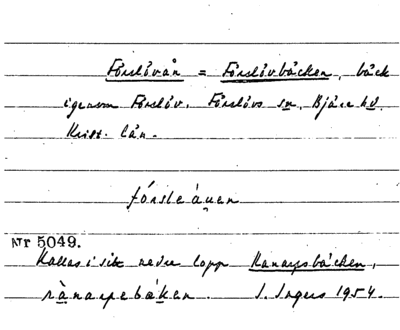 Förslövån = Förslövbäcken, bäck
igenom Förslöv. Förslövs sn, Bjäre hd.
Krist. län.
fórsleáuen
Nr 5049.
Kallas i sitt nedre lopp Ranarpsbäcken,
rànarpebæken. I. Ingers 1954.